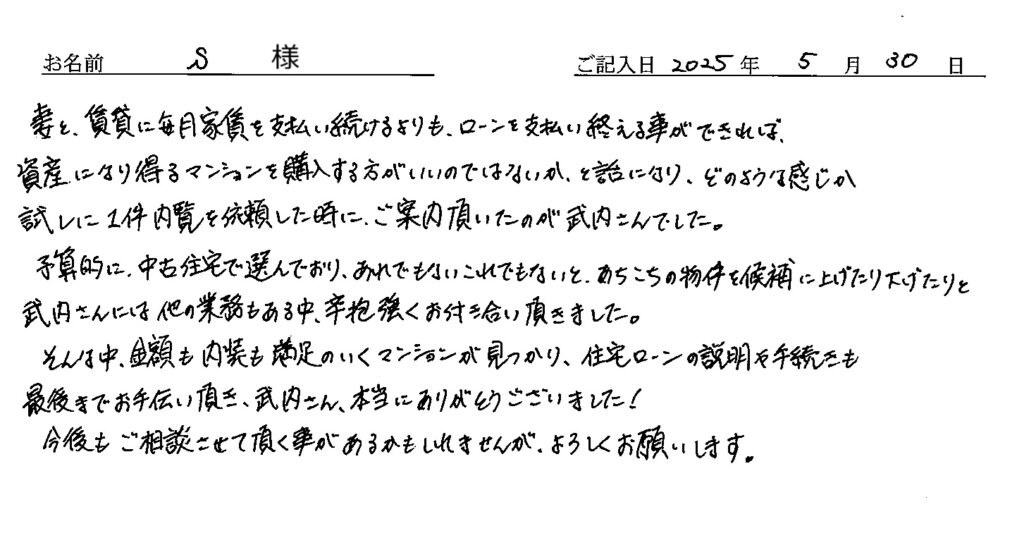 お名前 S 様 ご記入日 2025年 5月 30日
妻と、賃貸に毎月家賃を支払い続けるよりも、ローンを支払い終える事ができれば、
資産になり得るマンションを購入する方がいいのではないか、と話になり、どのような感じか
試しに1件内覧を依頼した時に、ご案内頂いたのが武内さんでした。
予算的に、中古住宅で選んでおり、あれでもないこれでもないと、あちこちの物件を候補に上げたり下げたりと
武内さんには他の業務もある中、辛抱強くお付き合い頂きました。
そんな中、金額も内装も満足のいくマンションが見つかり、住宅ローンの説明や手続きも
最後までお手伝い頂き、武内さん、本当にありがとうございました!
今後もご相談させて頂く事があるかもしれませんが、よろしくお願いします。